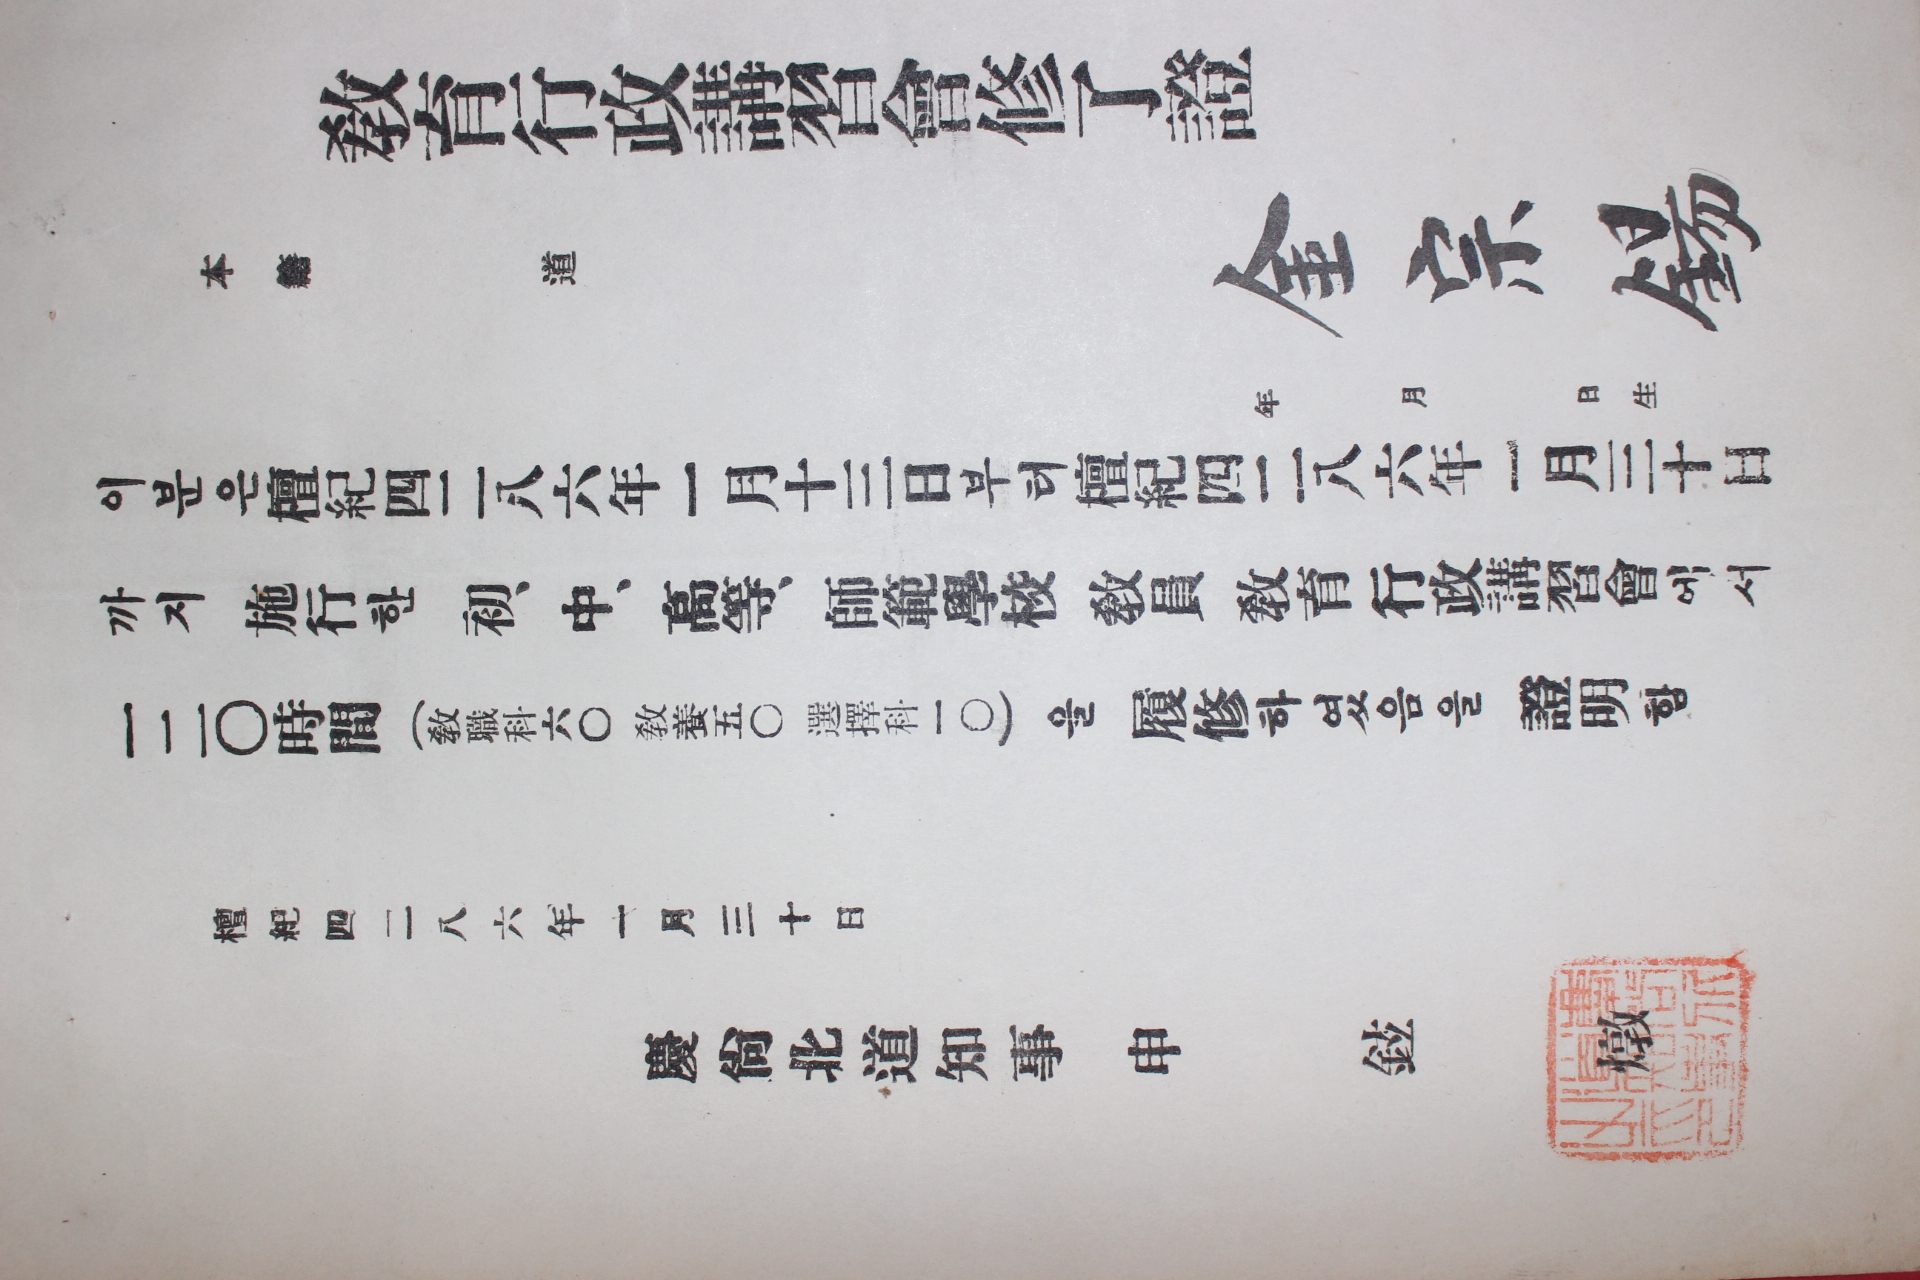 敎育行政講習會修了證
本籍 道
金宗錫
年 月 日生
이분은檀紀四二八六年一月十三日부터檀紀四二八六年一月三十日
까지 施行한 初、中、高等、師範學校 敎員 敎育行政講習會에서
一二〇時間(敎職科六〇 敎養五〇 選擇科一〇)을 履修하였음을 證明함
檀紀四二八六年一月三十日
慶尙北道知事 申 鉉 燉